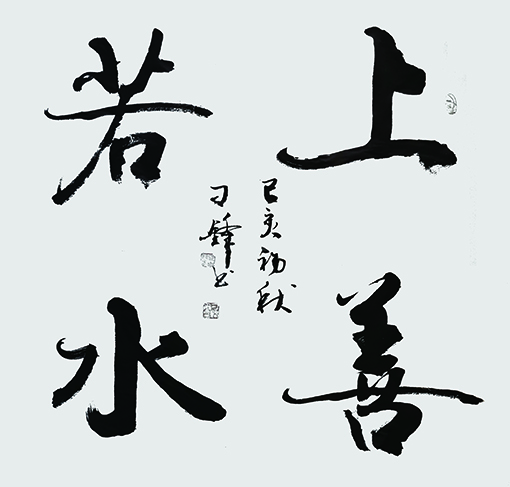 上善
若水
己亥初秋
刁鋒书